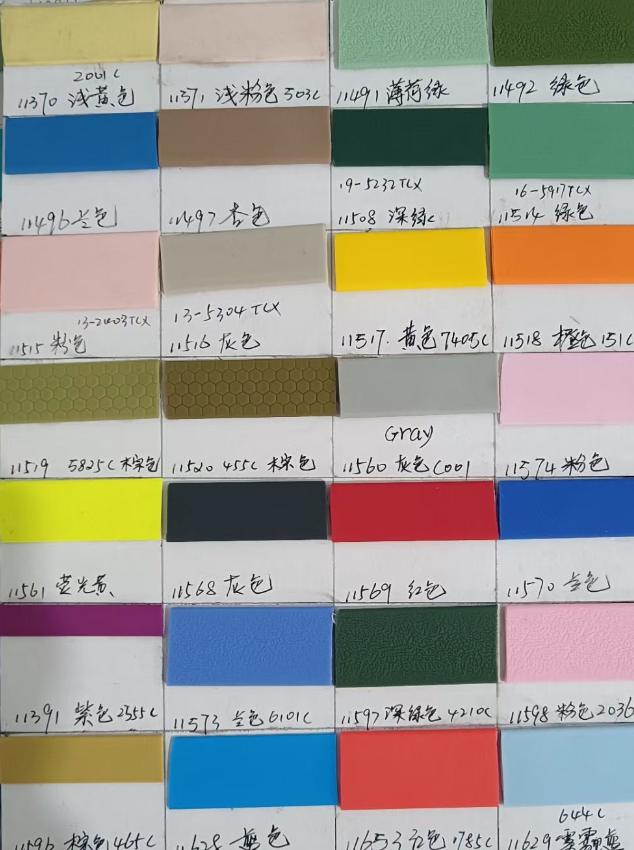 2001C
11370 浅黄色
11371 浅粉色 503C
11491 薄荷绿
11492 绿色
11496 兰色
11497 杏色
19-5232TCX
11508 深绿
16-5917TCX
11514 绿色
13-2403TCX
11515 粉色
13-5304TCX
11516 灰色
11517. 黄色 7405C
11518 橙色 151C
11519 5825C 棕色
11520 455C 棕色
Gray
11560 灰色 C001
11574 粉色
11561 荧光黄
11568 灰色
11569 红色
11570 兰色
11391 紫色 2355C
11573 兰色 6101C
11597 深绿色 4210C
11598 粉色 2036
11596 棕色 465C
11628 蓝色
11653 红色 1785C
644C
11629 雾霾蓝